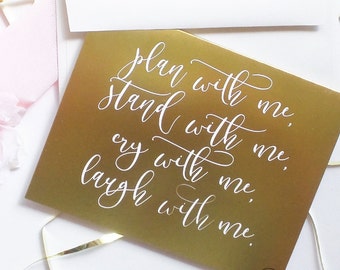 plan with me,
stand with me,
cry with me,
laugh with me.